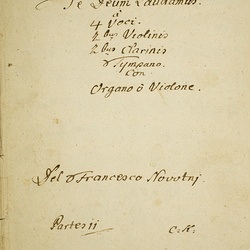 Te Deum Laudamus.
à
4 Voci.
2bus Violinis
2bus Clarinis
Tympano.
Con
Organo ô Violone.
Del Francesco Novotnj.
Partes 11
C. K.